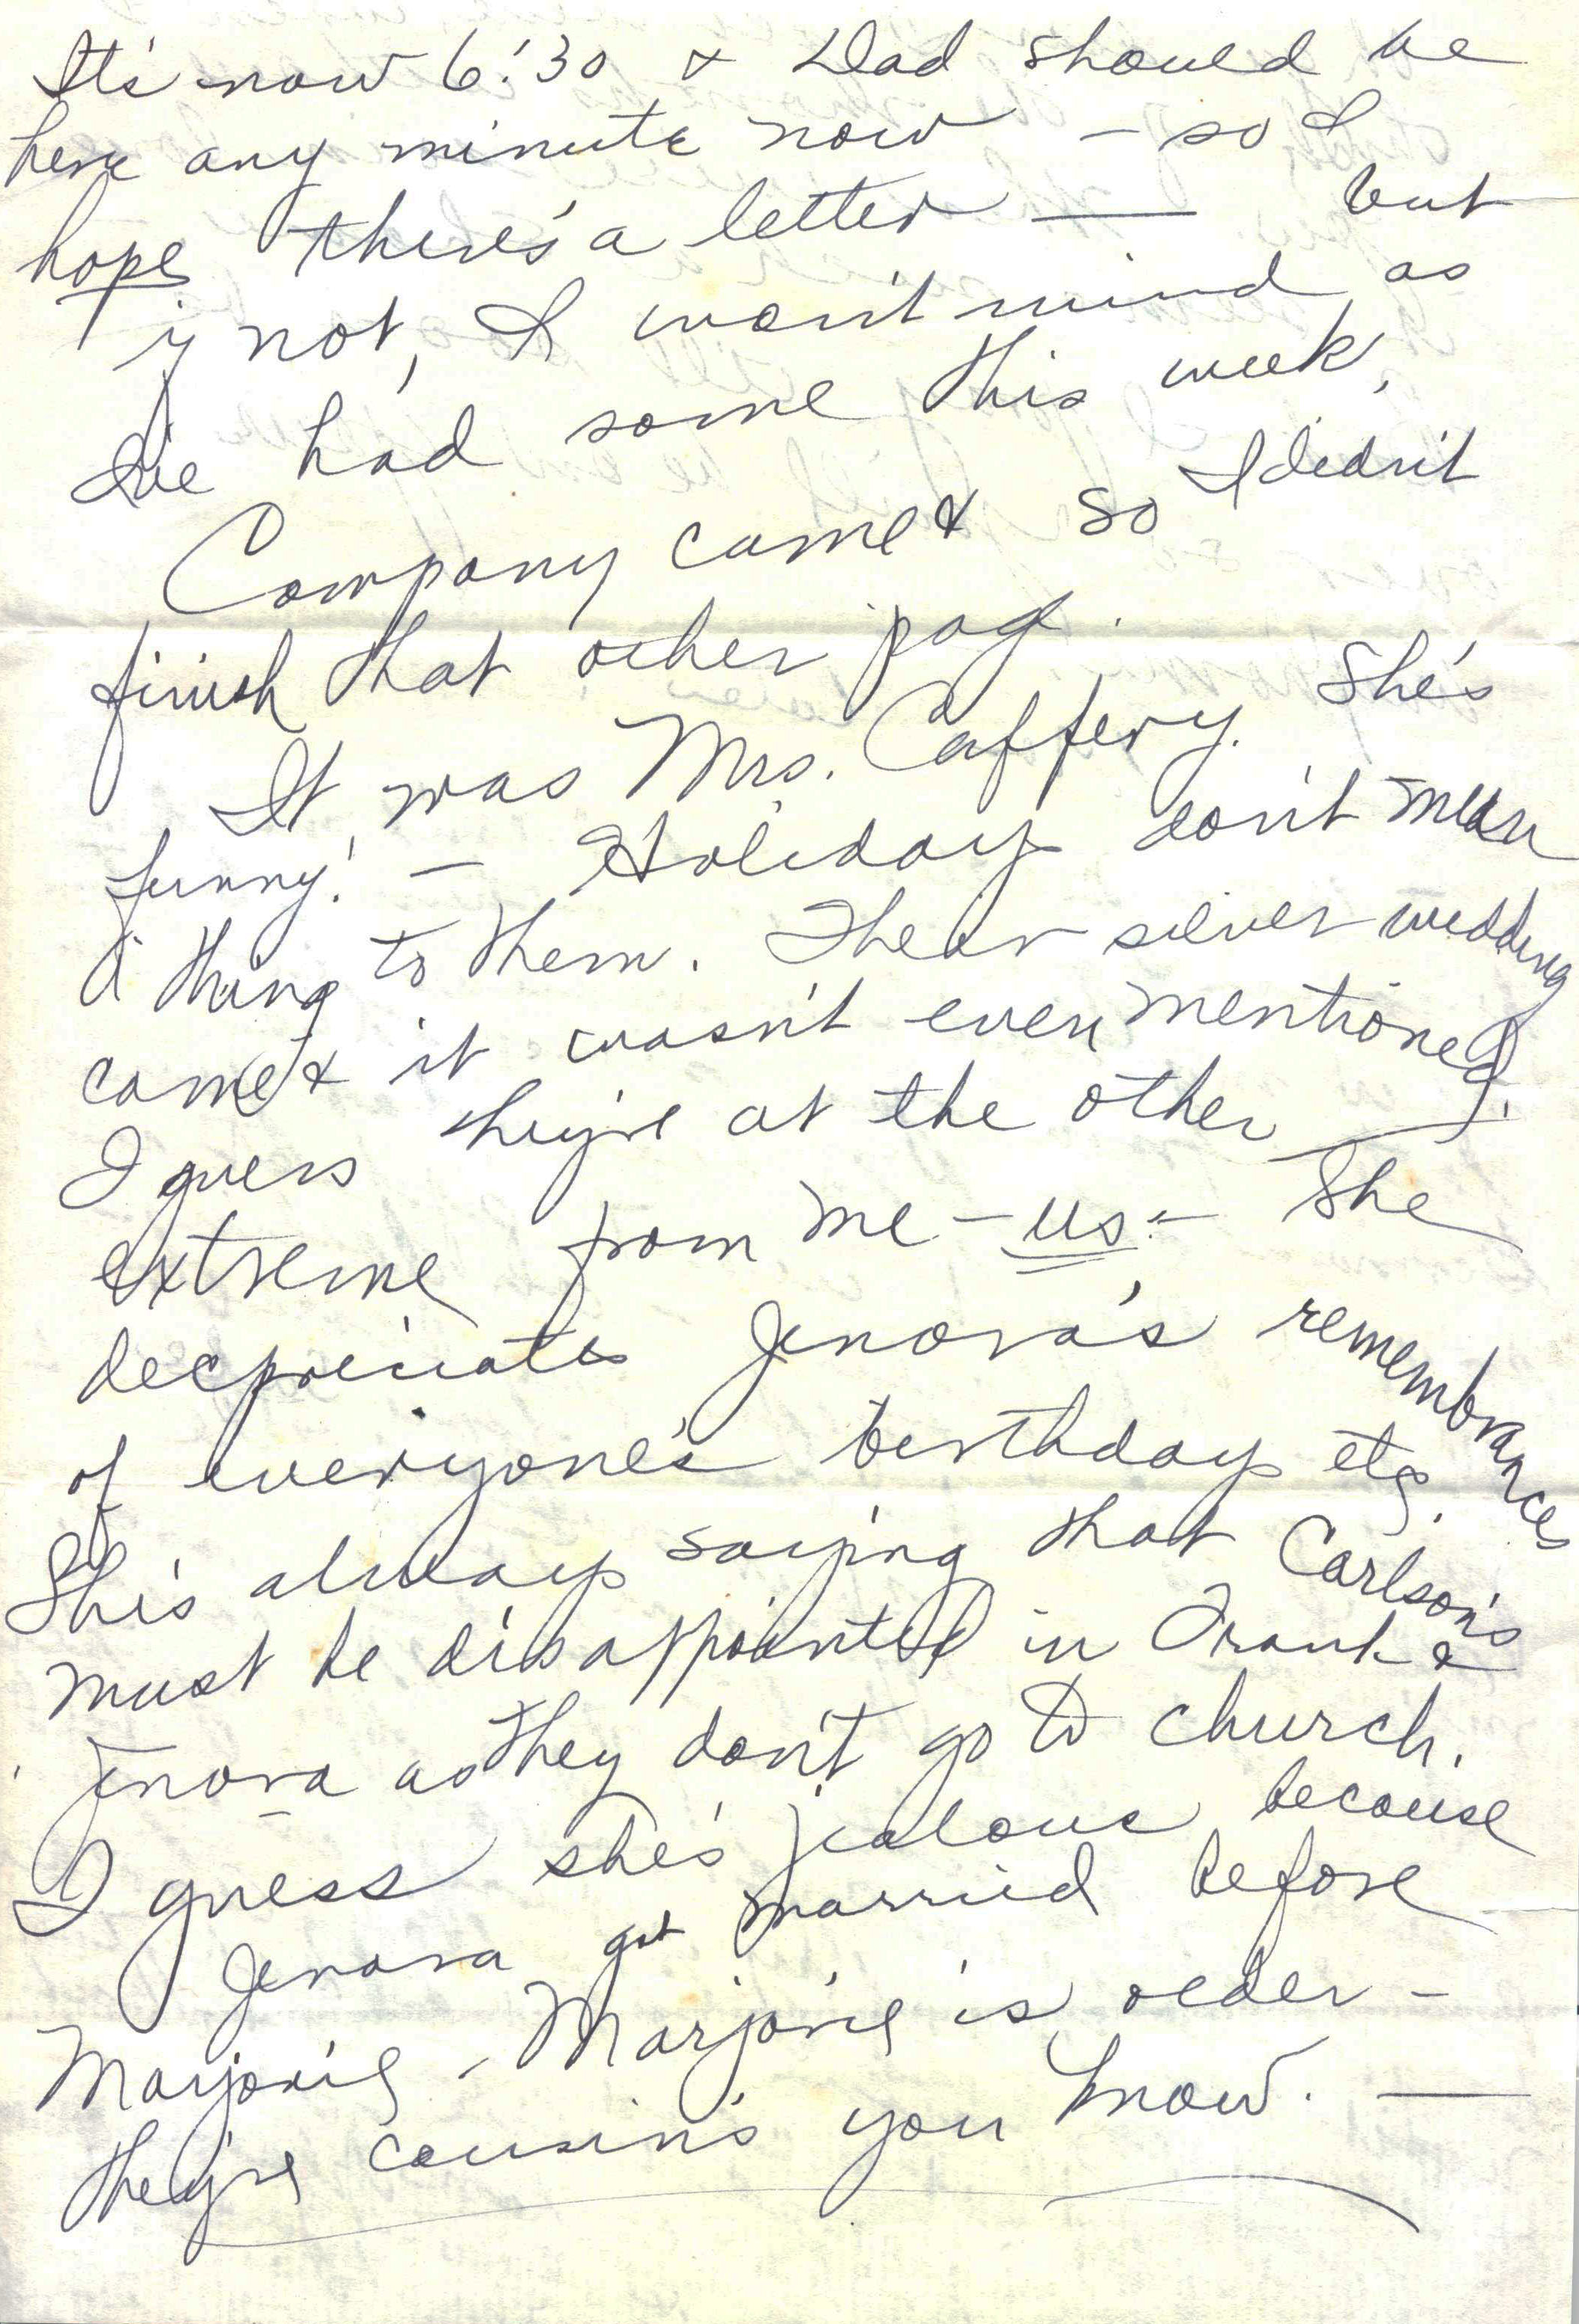 It's now 6:30 & Dad should be
here any minute now — so I
hope there's a letter — but
if not, I won't mind, as
I've had some this week,
Company came & so I didn't
finish that other pag.
It was Mrs. Caffery. She's
funny! — Holiday don't mean
a thing to them. Their silver wedding
came & it wasn't even mentioned.
I guess they're at the other
extreme from me — us. — She
decpreciates Jenora's remembrances
of everyone's birthdays etc.
She's always saying that Carlson's
must be disappointed in Frank &
Jenora as they don't go to church.
I guess she's jealous because
Jenora got married before
Marjorie - Marjorie is older -
they're cousin's you know. —